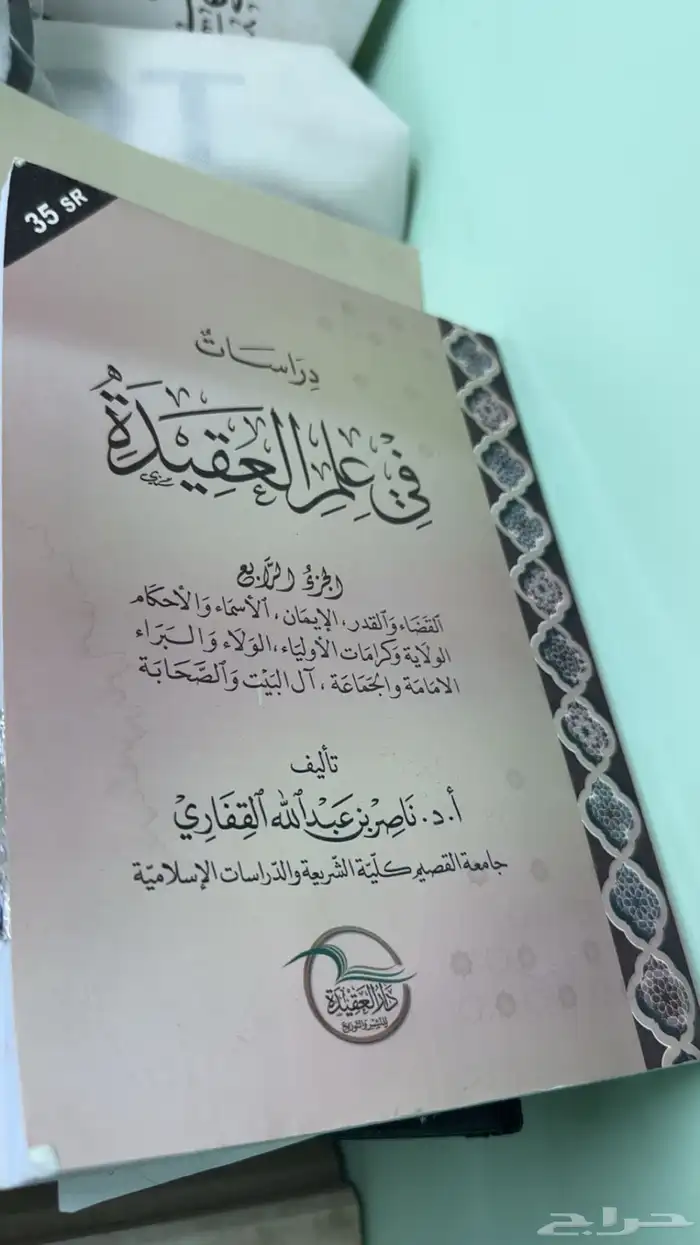 35 SR
دِرَاسَاتٌ
فِي عِلمِ العَقِيدَةِ
الجزءُ الرَّابع
القَضَاء وَالقدر، الإيمَان، الأسمَاء وَالأحكَام
الولاية وَكرامَات الأولياء، الوَلَاء وَالبَرَاء
الامَامَة والجَمَاعَة، آل البَيْت وَالصَّحَابَة
تأليف
أ.د. نَاصِر بن عَبْدِ الله القِفَارِيّ
جامعة القصيم كليّة الشّريعة والدّراسات الإسلاميّة
دَارُ العَقِيدَة
للنشر والتوزيع
حراج